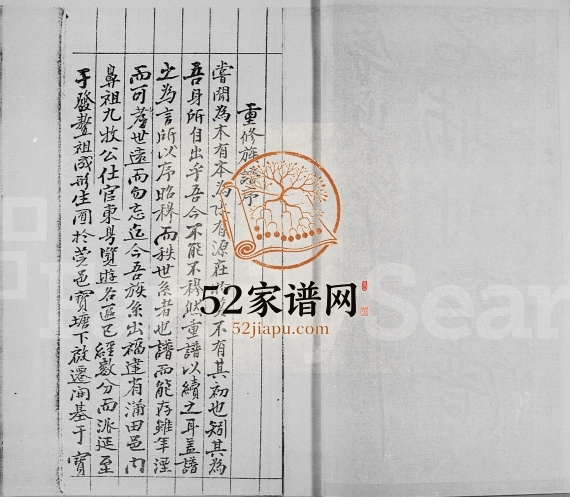 重修族譜序
嘗聞為木有本為水有源在不有其初也矧其為
吾身所自出乎吾今不能不穆然重譜以續之耳蓋譜
之為言所以序昭穆而秩世系者也譜而能存雖年湮
而可考世遠而勿忘迄今吾族系出福建省蒲田邑內
鼻祖九牧公仕官東粵覽遊各區已經數分而派延至
于發釐祖成形生聞於莞邑寶塘下啟遷開基于寶
52家谱网
52jiapu.com